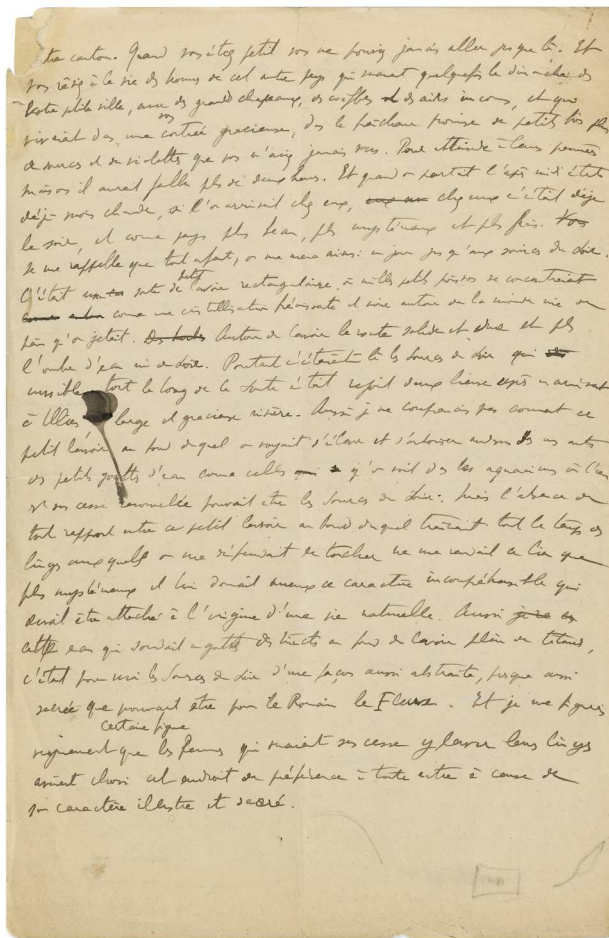 tre canton. Quand vous étiez petit vous ne pouviez jamais aller jusque là. Et
vous rêviez à la vie des hommes de cet autre pays qui venaient quelquefois le dimanche dans
votre petite ville, avec des grands chapeaux, des coiffes et des airs inconnus, et qui
vivaient dans une contrée gracieuse, dans la fraîcheur promise de petits bois plus
de mures et de violettes que vous n'aviez jamais vus. Pour atteindre à leurs premières
maisons il aurait fallu plus de deux heures. Et quand on partait l'après midi était
déjà moins chaude, si l'on arrivait chez eux, chez eux c'était déjà
le soir, et comme pays plus beau, plus mystérieux et plus frais.
Je me rappelle que tout enfant, on me mena ainsi un jour jusqu'aux sources du Loir.
C'était une sorte de petit lavoir rectangulaire, où mille petits poissons se concentraient
comme une cristallisation frémissante et noire autour de la moindre mie de
pain qu'on jetait. Autour du lavoir la route solide et dure et plus
l'ombre d'eau ni de Loir. Pourtant c'étaient là les Sources du Loir qui
invisible tout le long de la route était rejoint deux lieues après en arrivant
à Illiers, large et gracieuse rivière. Aussi je ne comprenais pas comment ce
petit lavoir au fond duquel on voyait s'élever et
des petites gouttes d'eau comme celles qu'on voit dans les aquariums où l'eau
est sans cesse renouvelée pouvait être les Sources du Loir. Mais l'absence de
tout rapport entre ce petit lavoir au bord duquel traînaient tout le temps des
linges auxquels on me défendait de toucher ne me rendait ce lieu que
plus mystérieux et lui donnait mieux ce caractère incompréhensible qui
devait être attaché à l'origine d'une vie naturelle. Aussi
cette eau qui sourdait en gouttes au fond du lavoir plein de têtards,
c'était pour moi les Sources du Loir d'une façon aussi abstraite, presque aussi
sacrée que pouvait être pour le Romain le Fleuve. Et je me figurais
certaine figure
vaguement que les femmes qui venaient sans cesse y laver leurs linges
avaient choisi cet endroit de préférence à toute autre à cause de
son caractère illustre et sacré.